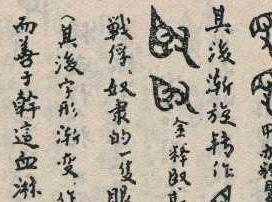 其後漸旋轉作
金釋臤
戰俘、奴隸的一隻眼
(其後字形漸变、作
而善于幹這血淋